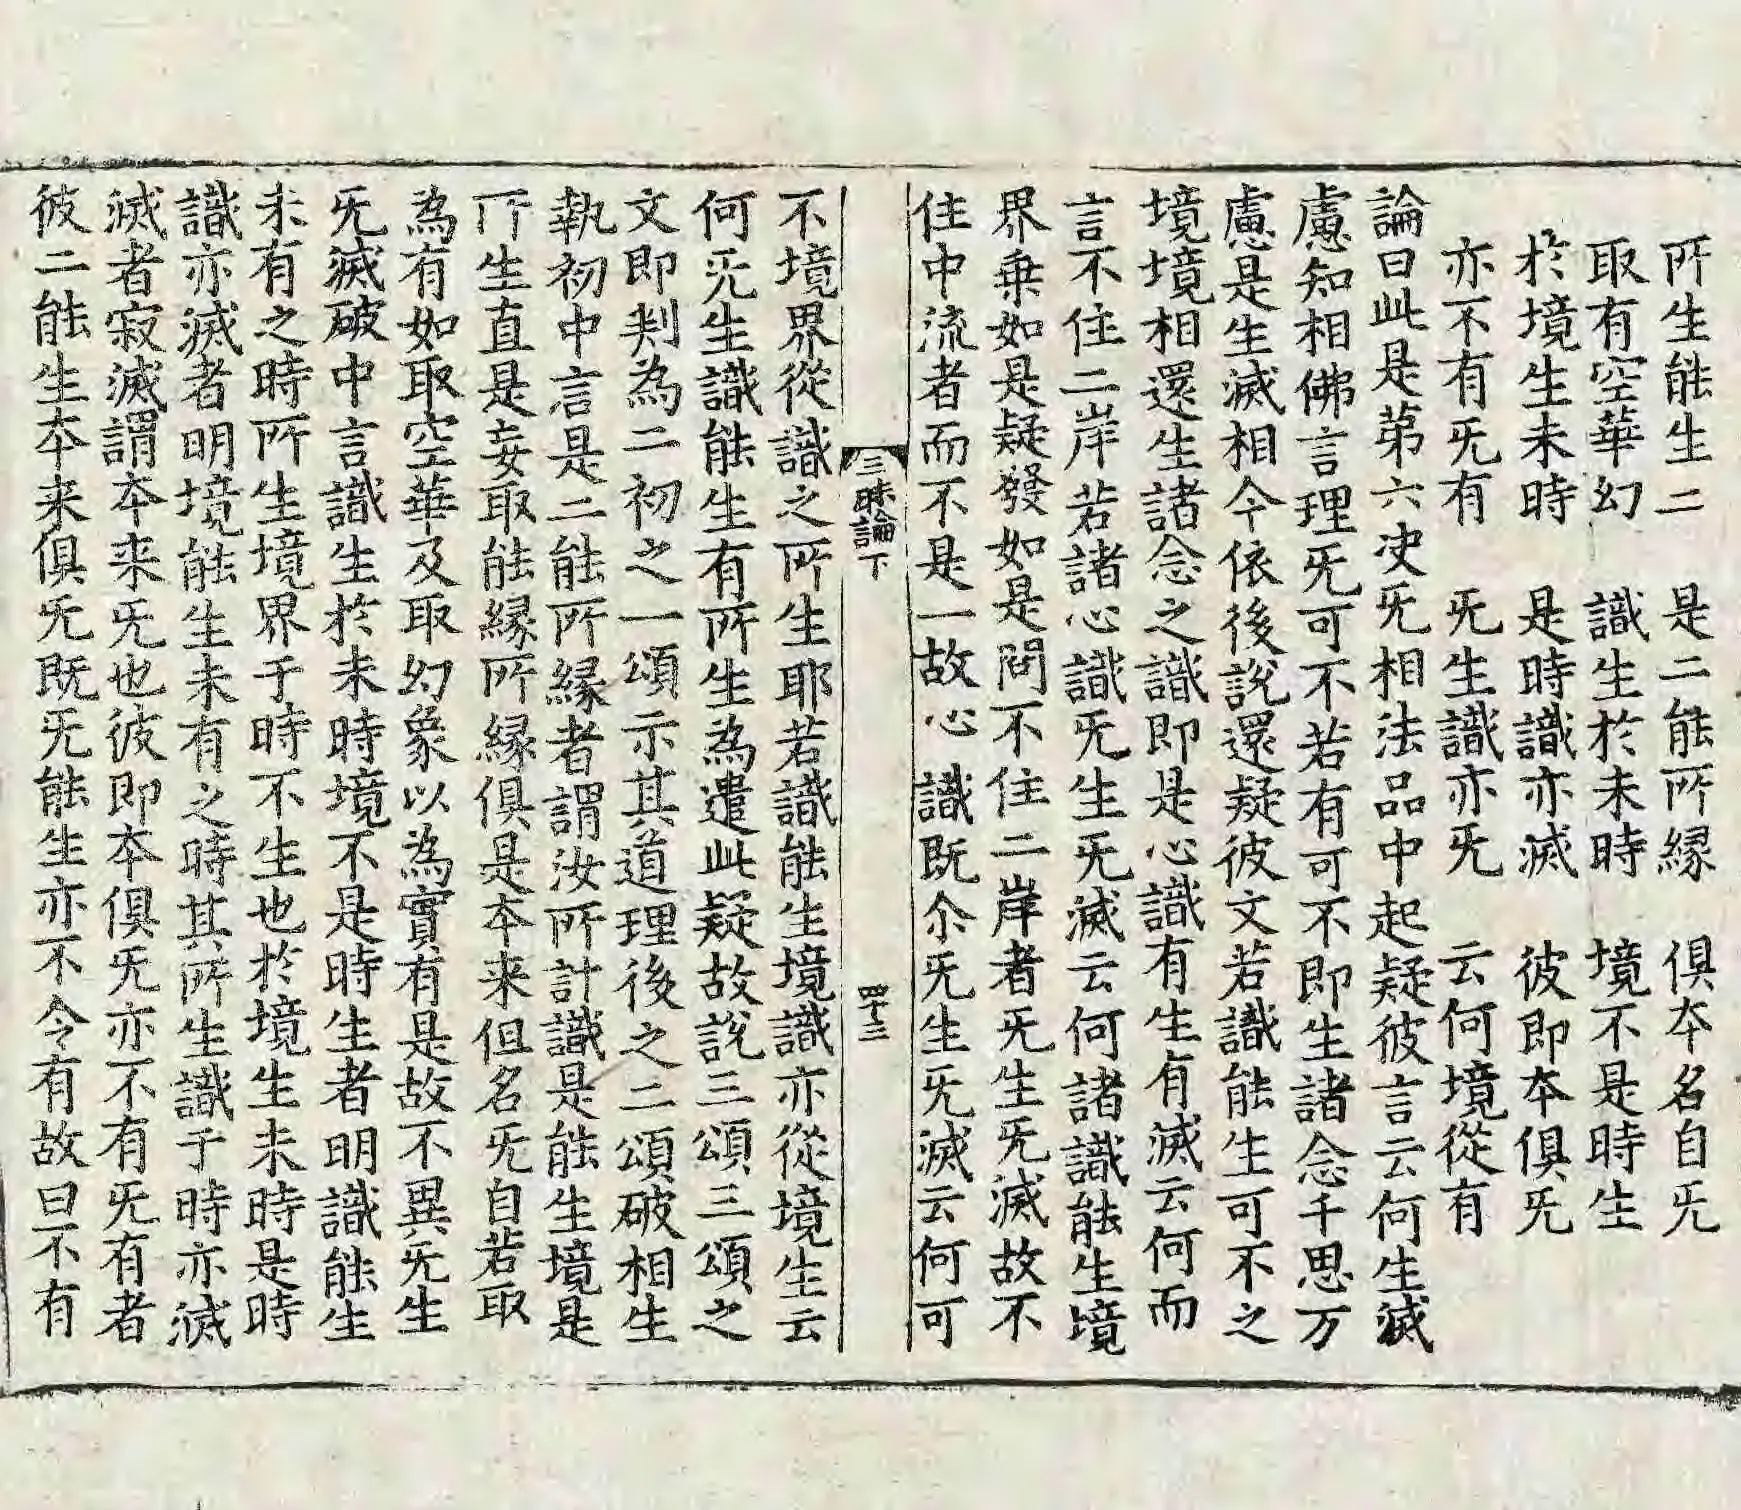 所生能生二　是二能所縁　俱夲名自旡
取有空華幻　識生於未時　境不是時生
於境生未時　是時識亦滅　彼即夲俱旡
亦不有旡有　旡生識亦旡　云何境從有
論曰此是苐六决旡相法品中起疑彼言云何生滅
慮知相佛言理旡可不若有可不即生諸念千思万
慮是生滅相今依後說還疑彼文若識能生可不之
境境相還生諸念之識即是心識有生有滅云何而
言不住二岸若諸心識旡生旡滅云何諸識能生境
界乗如是疑發如是問不住二岸者旡生旡滅故不
住中流者而不是一故心識既尒旡生旡滅云何可
三昧論下　四十三
不境界從識之所生耶若識能生境識亦從境生云
何旡生識能生有所生為遣此疑故說三頌三頌之
文即判為二初之一頌示其道理後之二頌破相生
執初中言是二能所縁者謂汝所計識是能生境是
所生直是妄取能縁所縁俱是夲来但名旡自若取
為有如取空華及取幻象以為實有是故不異旡生
旡滅破中言識生於未時境不是時生者明識能生
未有之時所生境界于時不生也於境生未時是時
識亦滅者明境能生未有之時其所生識于時亦滅
滅者寂滅謂夲来旡也彼即夲俱旡亦不有旡有者
彼二能生夲来俱旡既旡能生亦不令有故曰不有